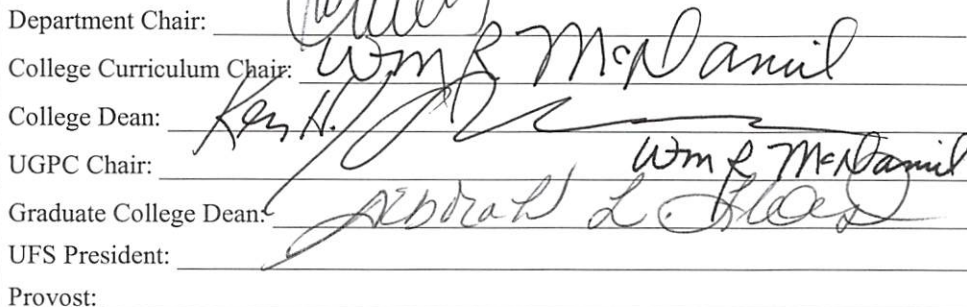 Department Chair:
College Curriculum Chair: Wm R McDaniel
College Dean: Ken H.
UGPC Chair: Wm R McDaniel
Graduate College Dean: Deborah L.
UFS President:
Provost: